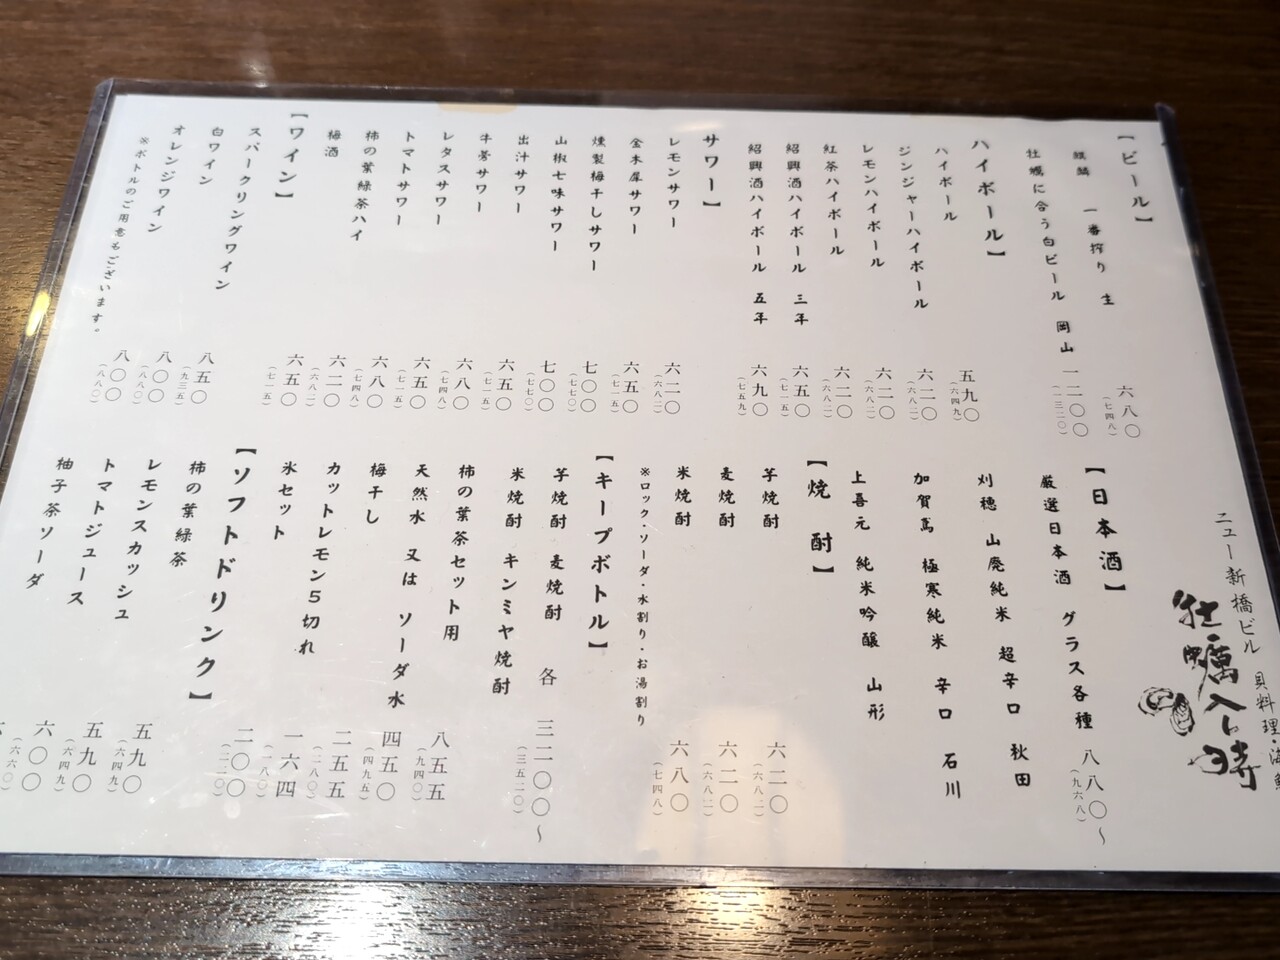 ニュー新橋ビル 貝料理・海鮮
牡蠣入レ時
【ビール】
麒麟 一番搾り 生 六八〇(七四八)
牡蠣に合う白ビール 岡山 一二〇〇(一三二〇)
ハイボール】
ハイボール 五九〇(六四九)
ジンジャーハイボール 六二〇(六八二)
レモンハイボール 六二〇(六八二)
紅茶ハイボール 六二〇(六八二)
紹興酒ハイボール 三年 六五〇(七一五)
紹興酒ハイボール 五年 六九〇(七五九)
サワー】
レモンサワー 六二〇(六八二)
金木犀サワー 六五〇(七一五)
燻製梅干しサワー 七〇〇(七七〇)
山椒七味サワー 七〇〇(七七〇)
出汁サワー 六五〇(七一五)
牛蒡サワー 六八〇(七四八)
レタスサワー 六五〇(七一五)
トマトサワー 六八〇(七四八)
柿の葉緑茶ハイ 六二〇(六八二)
梅酒 六五〇(七一五)
【ワイン】
スパークリングワイン 八五〇(九三五)
白ワイン 八〇〇(八八〇)
オレンジワイン 八〇〇(八八〇)
※ボトルのご用意もございます。
【日本酒】
厳選日本酒 グラス各種 八八〇(九六八)〜
刈穂 山廃純米 超辛口 秋田
加賀鳶 極寒純米 辛口 石川
上喜元 純米吟醸 山形
【焼酎】
芋焼酎 六二〇(六八二)
麦焼酎 六二〇(六八二)
米焼酎 六八〇(七四八)
※ロック・ソーダ・水割り・お湯割り
【キープボトル】
芋焼酎 麦焼酎 各 三二〇〇(三五二〇)〜
米焼酎 キンミヤ焼酎
柿の葉茶セット用 八五五(九四〇)
天然水 又は ソーダ水 四五〇(四九五)
梅干し 二五五(二八〇)
カットレモン5切れ 一六四(一八〇)
氷セット 二〇〇(二二〇)
【ソフトドリンク】
柿の葉緑茶 五九〇(六四九)
レモンスカッシュ 五九〇(六四九)
トマトジュース 六〇〇(六六〇)
柚子茶ソーダ